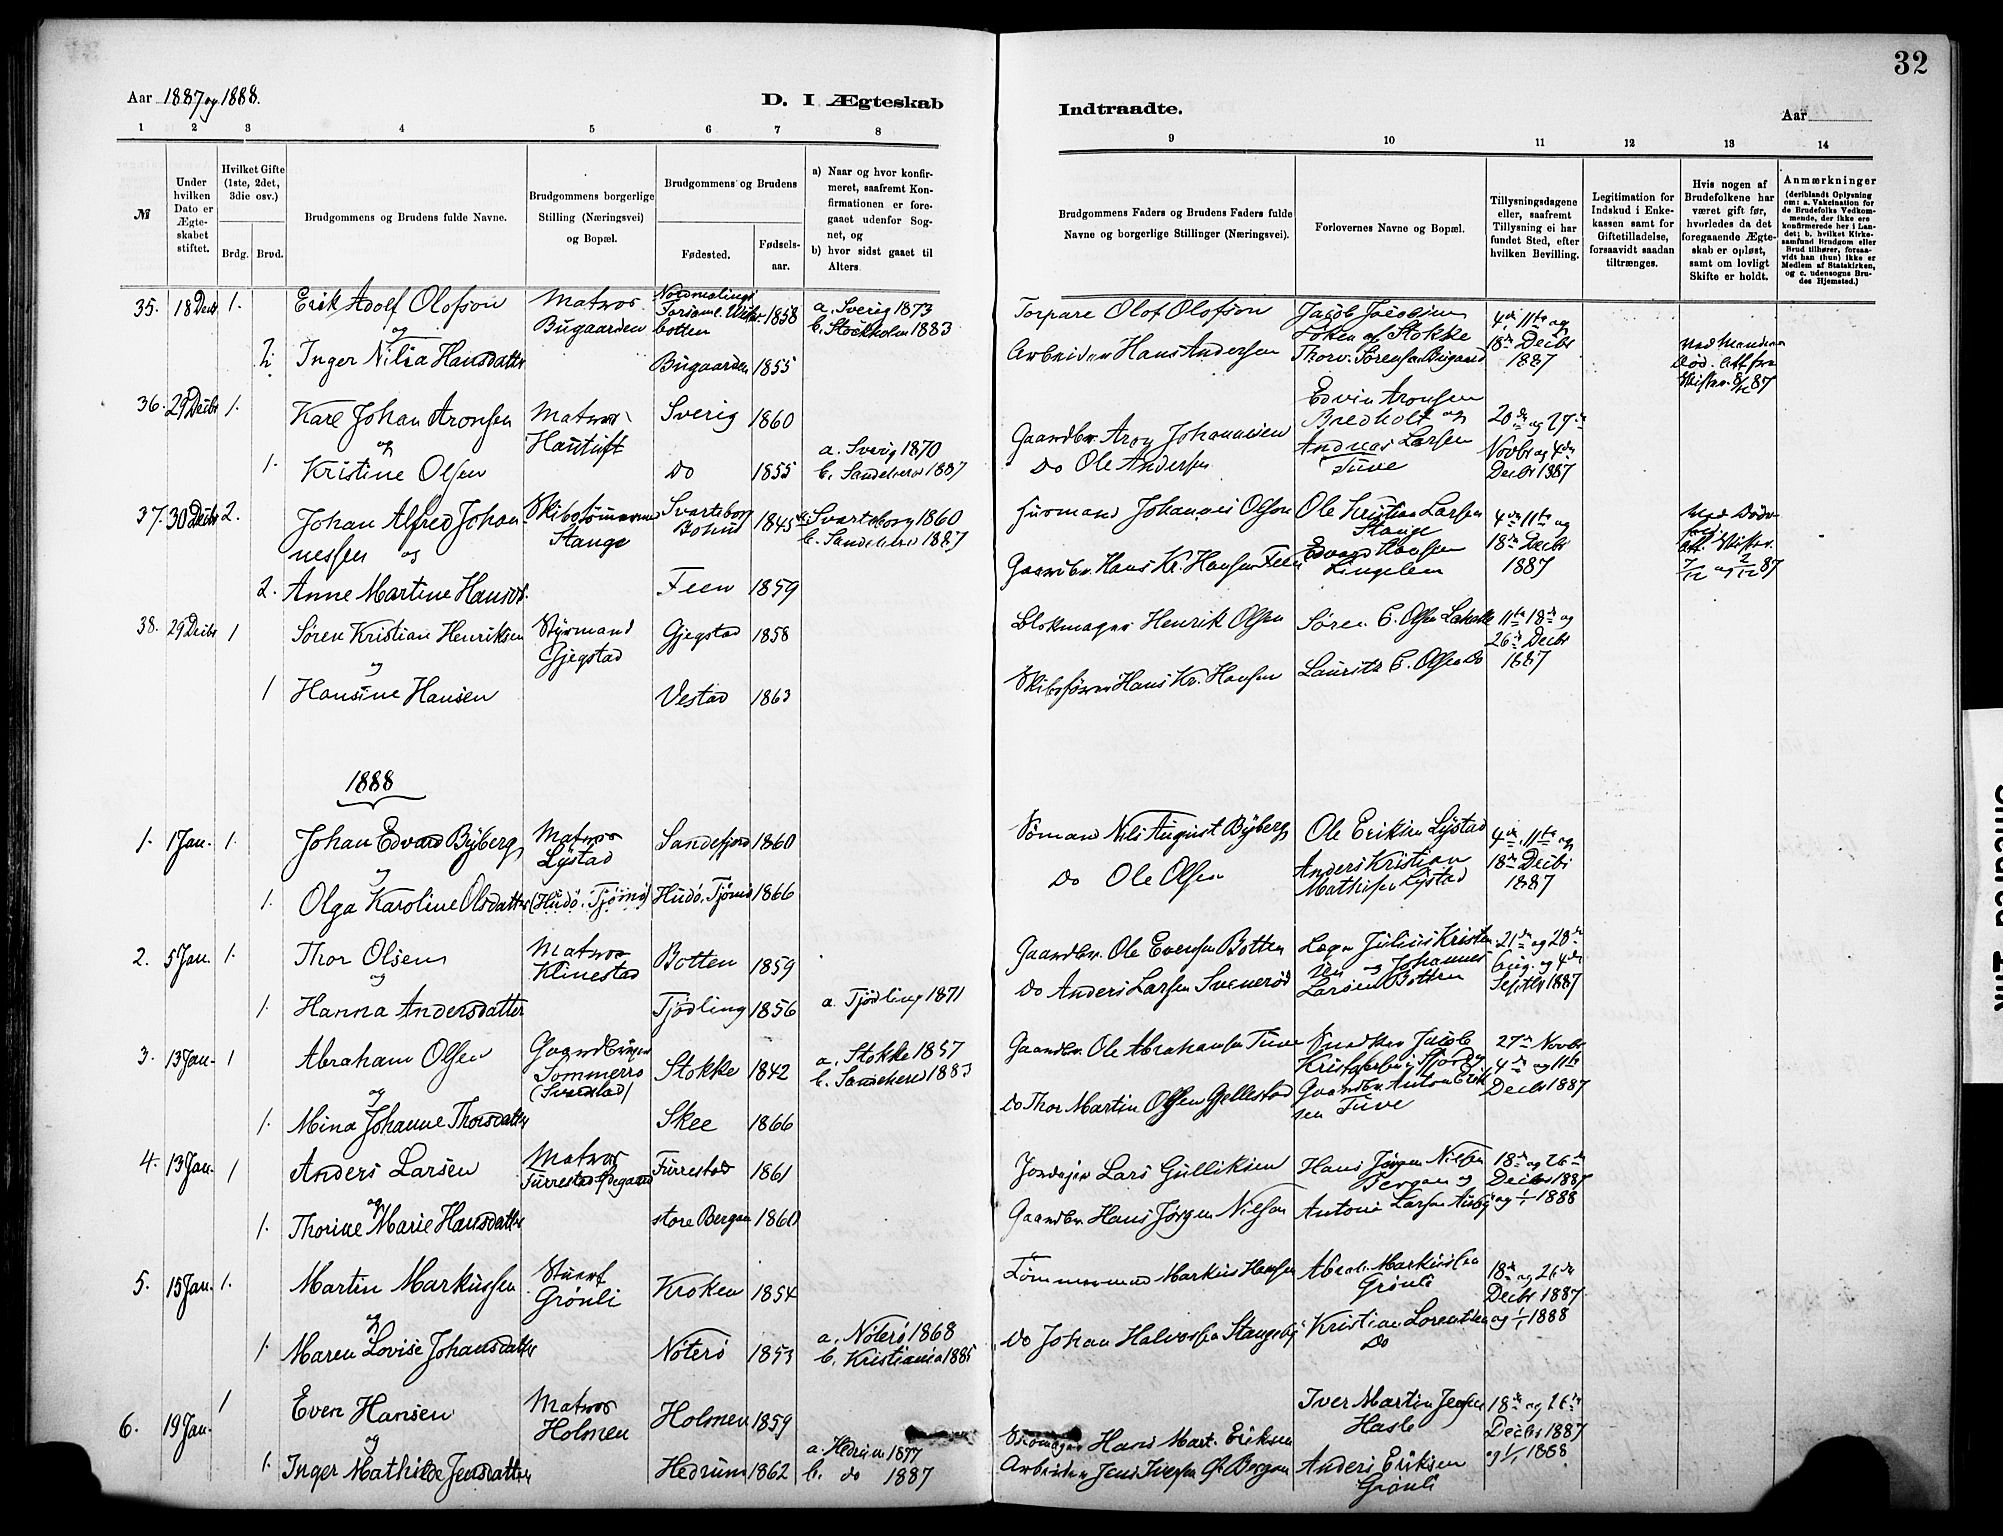 32
Aar 1887 og 1888.
D. I Ægteskab
Indtraadte.
Aar
1 2 3 4 5 6 7 8
9 10 11 12 13 14
№
Under hvilken Dato er Ægteskabet stiftet.
Hvilket Gifte (1ste, 2det, 3die osv.)
Brdg. Brud.
Brudgommens og Brudens fulde Navne.
Brudgommens borgerlige Stilling (Næringsvei) og Bopæl.
Brudgommens og Brudens
Fødested.
Fødsels-aar.
a) Naar og hvor konfirmeret, saafremt Konfirmationen er foregaaet udenfor Sognet, og
b) hvor sidst gaaet til Alters.
Brudgommens Faders og Brudens Faders fulde Navne og borgerlige Stillinger (Næringsvei).
Forlovernes Navne og Bopæl.
Tillysningsdagene eller, saafremt Tillysning ei har fundet Sted, efter hvilken Bevilling.
Legitimation for Indskud i Enkekassen samt for Giftetilladelse, forsaavidt saadan tiltrænges.
Hvis nogen af Brudefolkene har været gift før, hvorledes da det foregaaende Ægteskab er opløst, samt om lovligt Skifte er holdt.
Anmærkninger (deriblandt Oplysning om: a. Vakcination for de Brudefolks Vedkommende, der ikke ere konfirmerede her i Landet; b. hvilket Kirkesamfund Brudgom eller Brud tilhører, forsaavidt han (hun) ikke er Medlem af Statskirken, og c. udensogns Brudes Hjemsted.)
35. 18 Decbr 1. Erik Adolf Olofson Matros Bugaarden Nordmalings botten 1858 a. Sverig 1873 b. Stockholm 1883
Torpare Olof Olofson Jacob Jacobsen Løken af Stokke 4de, 11te og 18de Decbr 1887
og
2. Inger Nilia Hansdatter Bugaarden 1855
Arbeider Hans Andersen Thorv. Sørensen Bugaard
36. 29 Decbr 1. Karl Johan Aronsen Matros Hautuft Sverig 1860
Gaardbr. Aron Johannesen Edvin Aronsen Bredholt og 20de og 27de Novbr og 4de Decbr 1887
og
1. Kristine Olsen Do 1855 a. Sverig 1870 b. Sandeherred 1887
Do Ole Andersen Andreas Larsen Tuve
37. 30 Decbr 2. Johan Alfred Johannessen og Skibstømmermand Stange Svarteborg Bohus 1845 a. Svarteborg 1860 b. Sandeherred 1887
Husmand Johannes Olson Ole Kristian Larsen Stange 4de 11te og 18de Decbr 1887
2. Anne Martine Hansd. Feen 1859
Gaardbr. Hans Kr. Hansen Feen Edvard Hansen Lingelem
38. 29 Decbr 1 Søren Kristian Henriksen Styrmand Gjegstad Gjegstad 1858
Blokmager Henrik Olsen Søren C. Olsen 11te 18de og 26de Decbr 1887
og
1 Hansine Hansen Vestad 1863
Skibsfører Hans Kr. Hansen Lauritz C. Olsen Do
1888
1. 1 Jan. 1. Johan Edvard Byberg Matros Lystad Sandefjord 1860
Sømand Nils August Byberg Ole Eriksen Lystad 4de, 11te og 18de Decbr 1887
og
1. Olga Karoline Olsdatter (Hudø. Tjømø) Hudø. Tjømø 1866
Do Ole Olsen Anders Kristian Mathisen Lystad
2. 5 Jan. 1. Thor Olsen Matros Klinestad Botten 1859
Gaardbr. Ole Evensen Botten Lægn Julius Kristensen og Johannes Larsen Botten 21de og 28de Aug. og 4de Septbr 1887
og
1. Hanna Andersdatter Tjødling 1856 a. Tjødling 1871
Do Anders Larsen Svenerød
3. 13 Jan. 1 Abraham Olsen Gaardbruger Sommerro (Svarstad) Stokke 1842 a. Stokke 1857 b. Sandeherred 1883
Gaardbr. Ole Abrahamsen Tuve Snedker Jacob Kristofersen 27de Novbr 4de og 11te Decbr 1887
og
1. Mina Johanne Thorsdatter Skee 1866
Do Thor Martin Olsen Gellestad Gaardbr. Anton Eriksen Tuve
4. 13 Jan. 1 Anders Larsen Matros Furrestad Ødegaard Furrestad 1861
Jordeier Lars Gulliksen Hans Jørgen Nielsen Bergan og 18de og 26de Decbr 1887 og 1/1 1888
og
1. Thorine Marie Hansdatter store Bergan 1860
Gaardbr. Hans Jørgen Nielsen Anton Larsen
5. 15 Jan. 1. Martin Markussen Stuert Grønli Kroken 1854
Tømmermand Markus Hansen Abrah. Markussen Grønli 18de og 26de Decbr 1887 og 1/1 1888
og
1. Maren Lovise Johansdatter Nøterø 1853 a. Nøterø 1868 b. Kristiania 1885
Do Johan Halvorsen Stangeby Kristian Lorentsen Do
6. 19 Jan. 1 Even Hansen Matros Holmen Holmen 1859
Skomager Hans Mart. Eriksen Iver Martin Jensen Hasle 18de og 26de Decbr 1887 og 1/1 1888
og
1. Inger Mathilde Jensdatter Hedrum 1862 a. Hedrum 1877 b. do 1887
Arbeider Jens Iversen Bergan Anders Eriksen Grønli